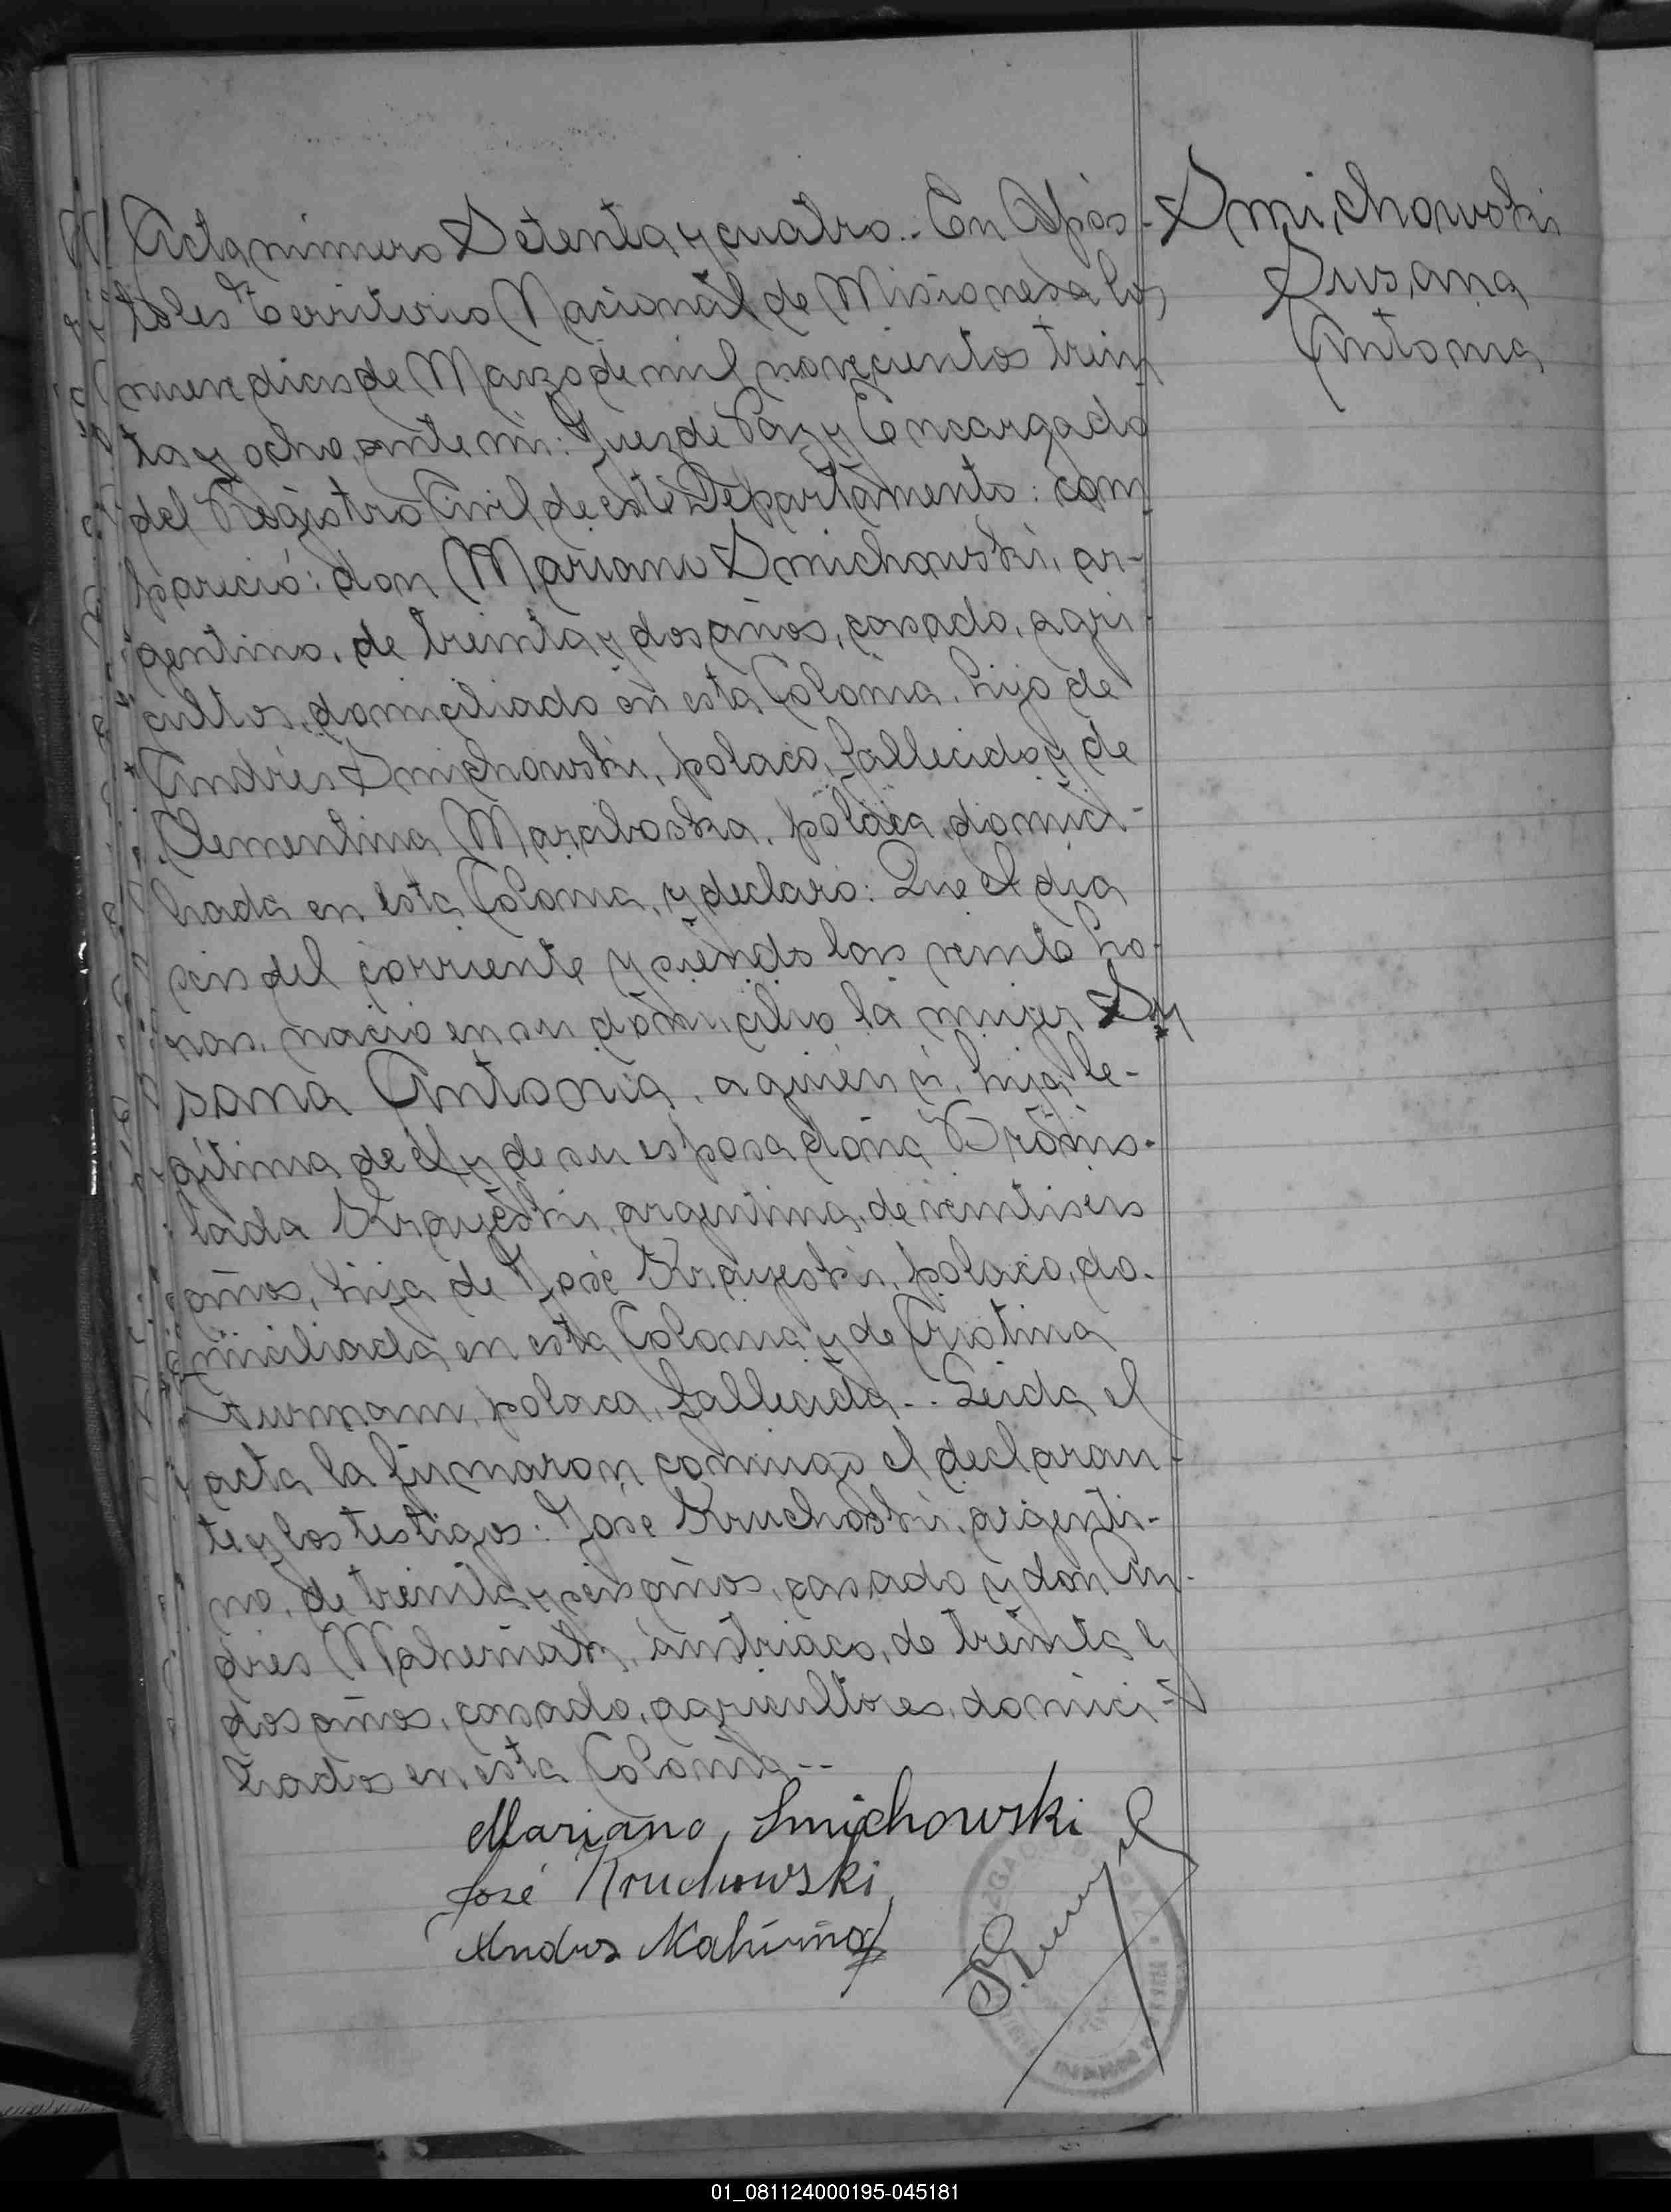 Acta número Setenta y cuatro.- En Após-
toles Territorio Nacional de Misiones a los
nueve dias de Marzo de mil novecientos trein
ta y ocho, ante mi: Juez de Paz y Encargado
del Registro Civil de este Departamento: com
pareció: don Mariano Smichowski, ar-
gentino, de treinta y dos años, casado, agri-
cultor, domiciliado en esta Colonia, hijo de
Andrés Smichowski, polaco, fallecido y de
Clementina polaca, domici-
liada en esta Colonia, y declaró: Que el dia
seis del corriente y siendo las veinte ho-
ras, nació en su domicilio la mujer Su
sana Antonia, a quien ví, hija le-
gítima de él y de su esposa doña Bronis-
lada argentina, de veintiseis
años, hija de José polaco, do-
miciliado en esta Colonia y de Cristina
polaca, fallecida.- Leida el
acta la firmaron conmigo el declaran-
te y los testigos: José Kruchoski, argenti-
no, de treinta y seis años, casado y don An-
drés austriaco, de treinta y
dos años, casado, agricultores, domici-
liados en esta Colonia--
Mariano Smichowski
José Kruchowski
Andres
Smichowski
Susana
Antonia
01_081124000195-045181